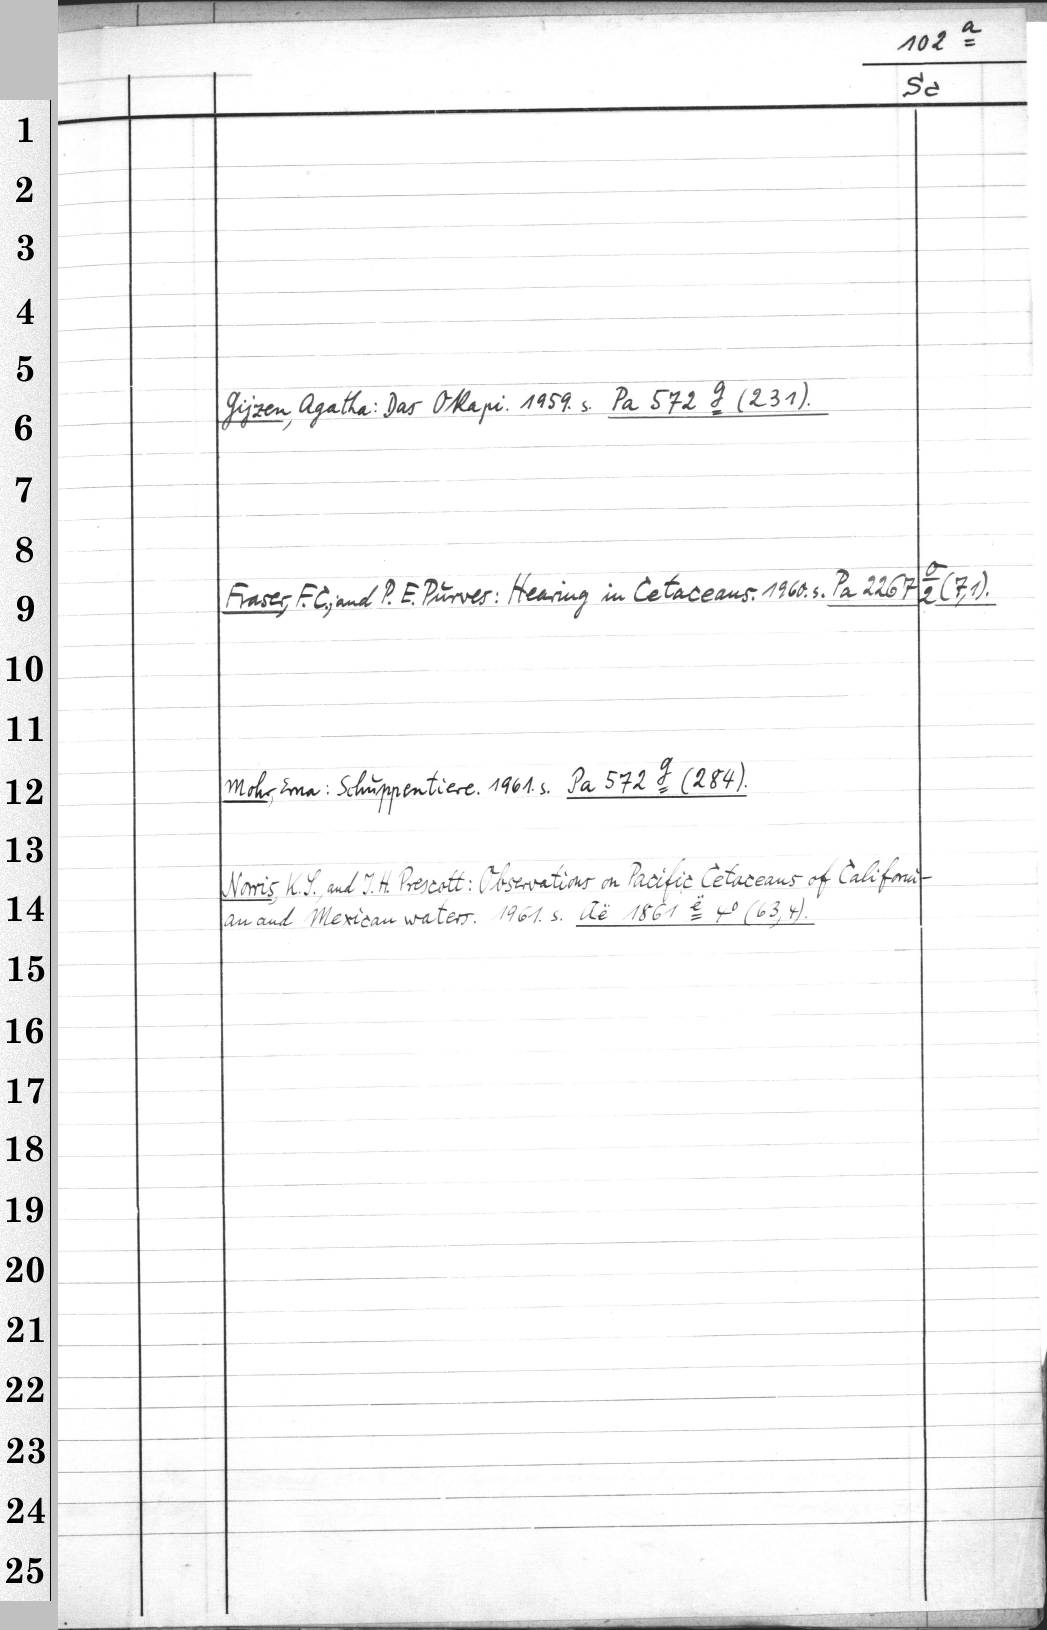 102 a
Sc
1
2
3
4
5
Gijzen, Agatha: Das Okapi. 1959. s. Pa 572 g (231).
6
7
8
Fraser, F. C., and P. E. Purves: Hearing in Cetaceans. 1960. s. Pa 2267 σ/2 (7,1).
9
10
11
Mohr, Erna: Schuppentiere. 1961. s. Pa 572 g (284).
12
13
Norris, K. S., and J. H. Prescott: Observations on Pacific Cetaceans of Californi-
14
an and Mexican waters. 1961. s. Aë 1861 ë 4° (63,4).
15
16
17
18
19
20
21
22
23
24
25